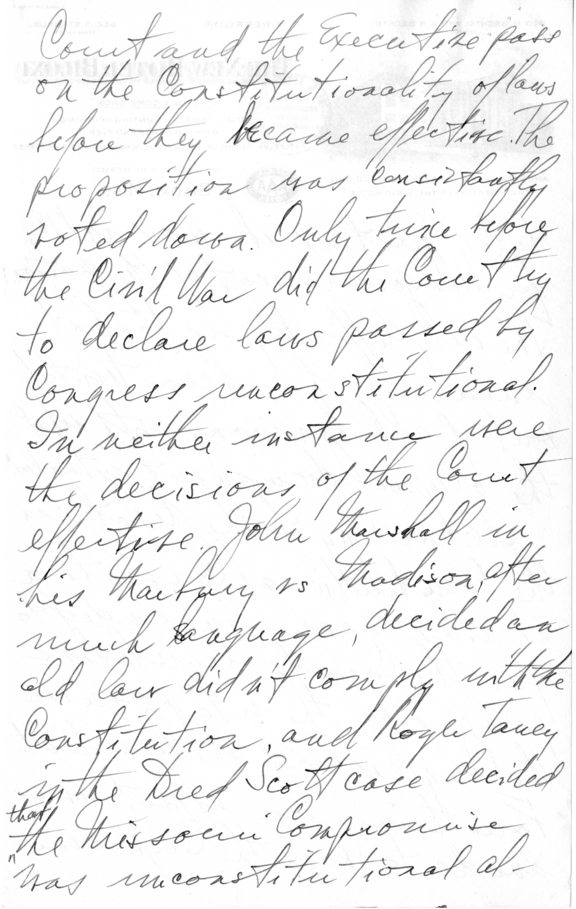 Court and the Executive pass
on the Constitutionality of laws
before they became effective. The
proposition was consistantly
voted down. Only twice before
the Civil War did the Court try
to declare laws passed by
Congress unconstitutional.
In neither instance were
the decisions of the Court
effective. John Marshall in
his Marbury vs Madison, after
much language, decided an
old law didn't comply with the
Constitution, and Roger Taney
in the Dred Scott case decided
that
the Missouri Compromise
was unconstitutional al-